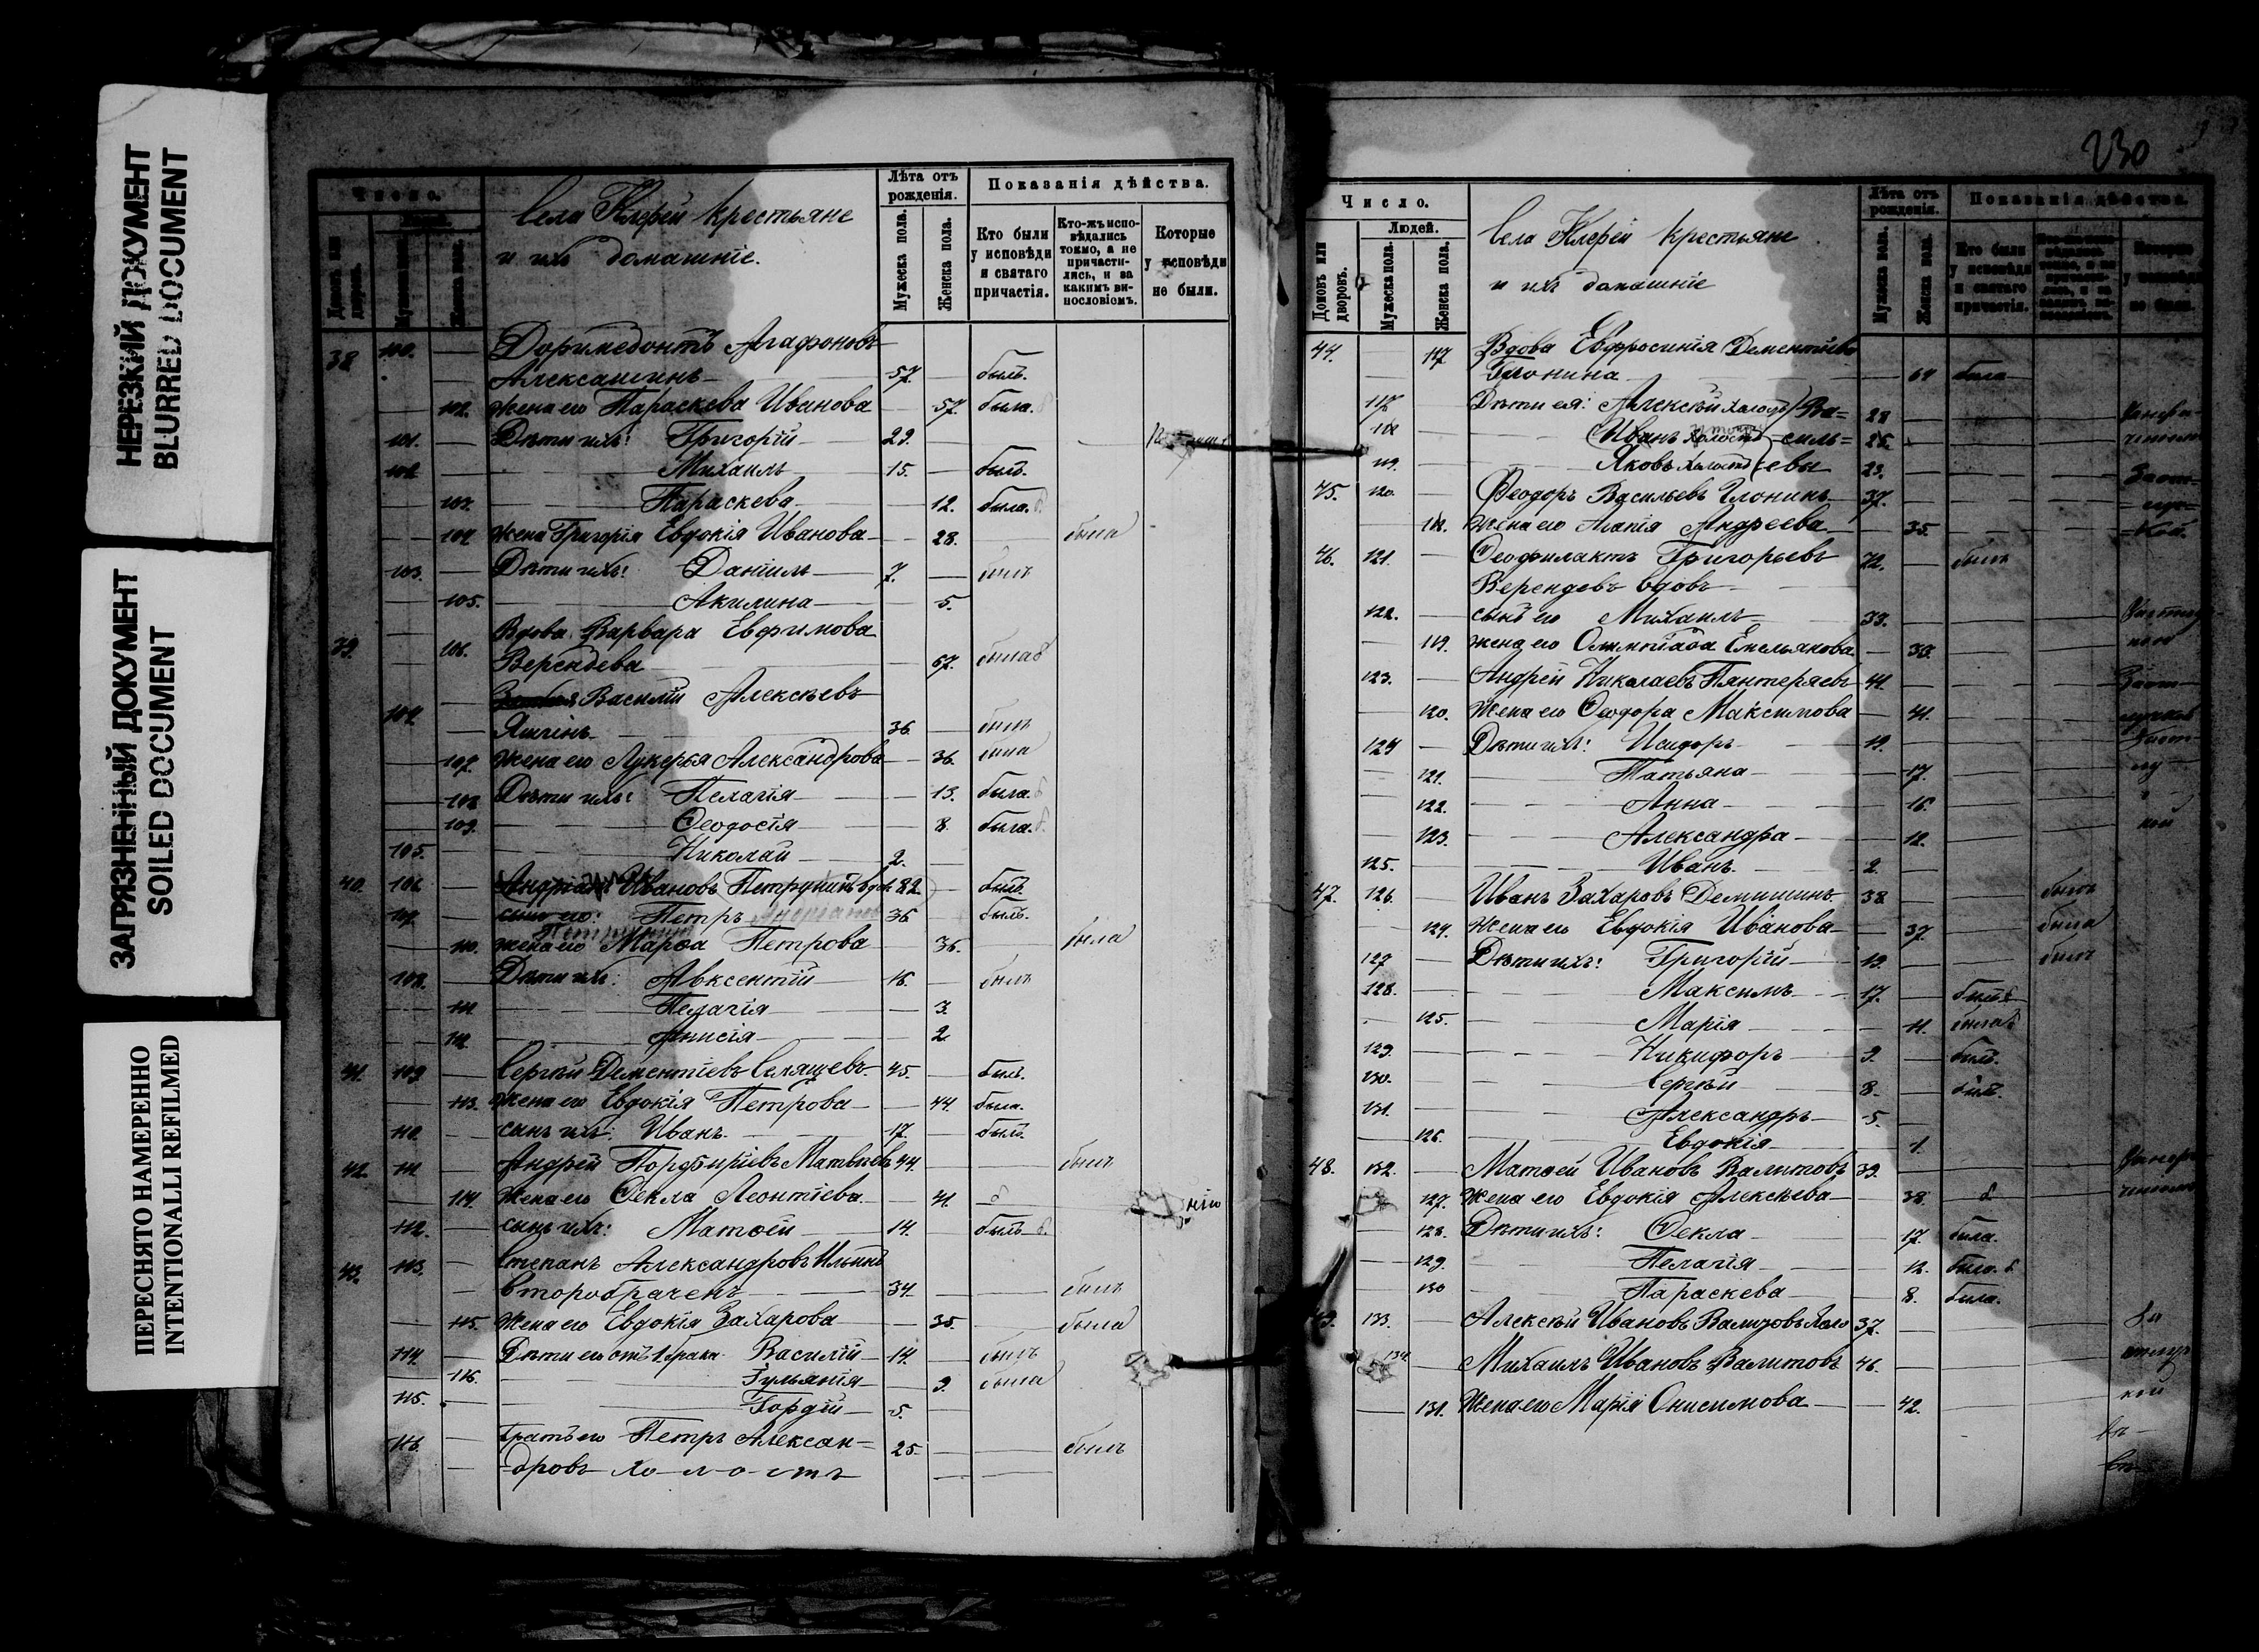 НЕРЕЗКИЙ ДОКУМЕНТ
BLURRED DOCUMENT
ЗАГРЯЗНЕННЫЙ ДОКУМЕНТ
SOILED DOCUMENT
ПЕРЕСНЯТО НАМЕРЕННО
INTENTIONALLI REFILMED
Число.
Села Клерей крестьяне
и ихъ домашніе.
Лѣта отъ рожденія.
Мужеска пола.
Женска пола.
Показанія дѣйства.
Кто были у исповѣди и святаго причастія.
Кто-жъ исповѣдались токмо, а не причастились, и за какимъ винословіемъ.
Которые у исповѣди не были.
38 100. Доримедонтъ Агафоновъ
Алексашинъ 57. былъ.
102. жена его Параскева Иванова 57. была.
101. Дѣти ихъ: Григорій 29.
102 Михаилъ 15. былъ.
103. Параскева 12. была.
104 жена Григорія Евдокія Иванова 28. была
103. Дѣти ихъ: Даніилъ 7. былъ
105. Акилина 5.
39. 106. Вдова Варвара Евфимова
Верендева 67. была
104. Василій Алексѣевъ
Яшинъ 36. былъ
107. жена его Лукерья Александрова 36.
108 Дѣти ихъ: Пелагія 13. была.
109. Ѳеодосія 8. была.
105. Николай 2.
40. 106. Андріанъ Ивановъ Петрунинъ вдов. 82 былъ.
107. сынъ его: Петръ 36 былъ.
110. жена его Марѳа Петрова 36. была
108. Дѣти ихъ: Авксентій 16. былъ
111 Пелагія 3.
112 Анисія 2
41. 109 Сергѣй Дементіевъ Селящевъ 45. былъ.
113. жена его Евдокія Петрова 44. была.
110. сынъ ихъ: Иванъ 17. былъ.
42. 111 Андрей Порфиріевъ Матвѣевъ 44. былъ
114. жена его Ѳекла Леонтіева 41.
112. сынъ ихъ: Матѳей 14. былъ
43. 113. Степанъ Александровъ Ильинъ
второбраченъ 34. былъ
115. жена его Евдокія Захарова 35. была
114. Дѣти его отъ 1 брака Василій 14. былъ
116. Іульянія 9. была
115. Гордій 5.
116. братъ его Петръ Алексан=
=дровъ холостъ 25. былъ
230
Число.
Домовъ или дворовъ.
Людей.
Мужеска пола.
Женска пола.
Села Клерей крестьяне
и ихъ домашніе
Лѣта отъ рожденія.
Мужеска пола.
Женска пола.
Показанія дѣйства.
44. 117 Вдова Евфросинія Дементіева
Глонина 64 была
117 Дѣти ея: Алексѣй холостъ Ва= 28
118 Иванъ холостъ =силь= 25.
119. Яковъ холостъ =евы 23.
45. 120. Ѳеодоръ Васильевъ Глонинъ 37.
118. жена его Агапія Андреева 35.
46. 121. Ѳеофилактъ Григорьевъ 72. былъ
Верендевъ вдовъ
122. сынъ его Михаилъ 33.
119. жена его Олимпіада Емельянова 30.
123. Андрей Николаевъ Пантеряевъ 44.
120. жена его Ѳеодора Максимова 41.
124 Дѣти ихъ: Исидоръ 19.
121. Татьяна 17.
122. Анна 16.
123. Александра 12.
125. Иванъ 2.
47. 126. Иванъ Захаровъ Демишинъ 38 былъ
124. жена его Евдокія Иванова 37. была
127 Дѣти ихъ: Григорій 19. былъ
128. Максимъ 17. былъ
125. Марія 11. была
129. Никифоръ 9. былъ.
130. Сергѣй 8. былъ.
131. Александръ 5.
126. Евдокія 1.
48. 132. Матѳей Ивановъ Валитовъ 39.
127. жена его Евдокія Алексѣева 38
128. Дѣти ихъ: Ѳекла 17. была.
129. Пелагія 12. была.
130 Параскева 8. была.
49. 133. Алексѣй Ивановъ Валитовъ 37.
134 Михаилъ Ивановъ Валитовъ 46.
131. жена его Марія Онисимова 42.